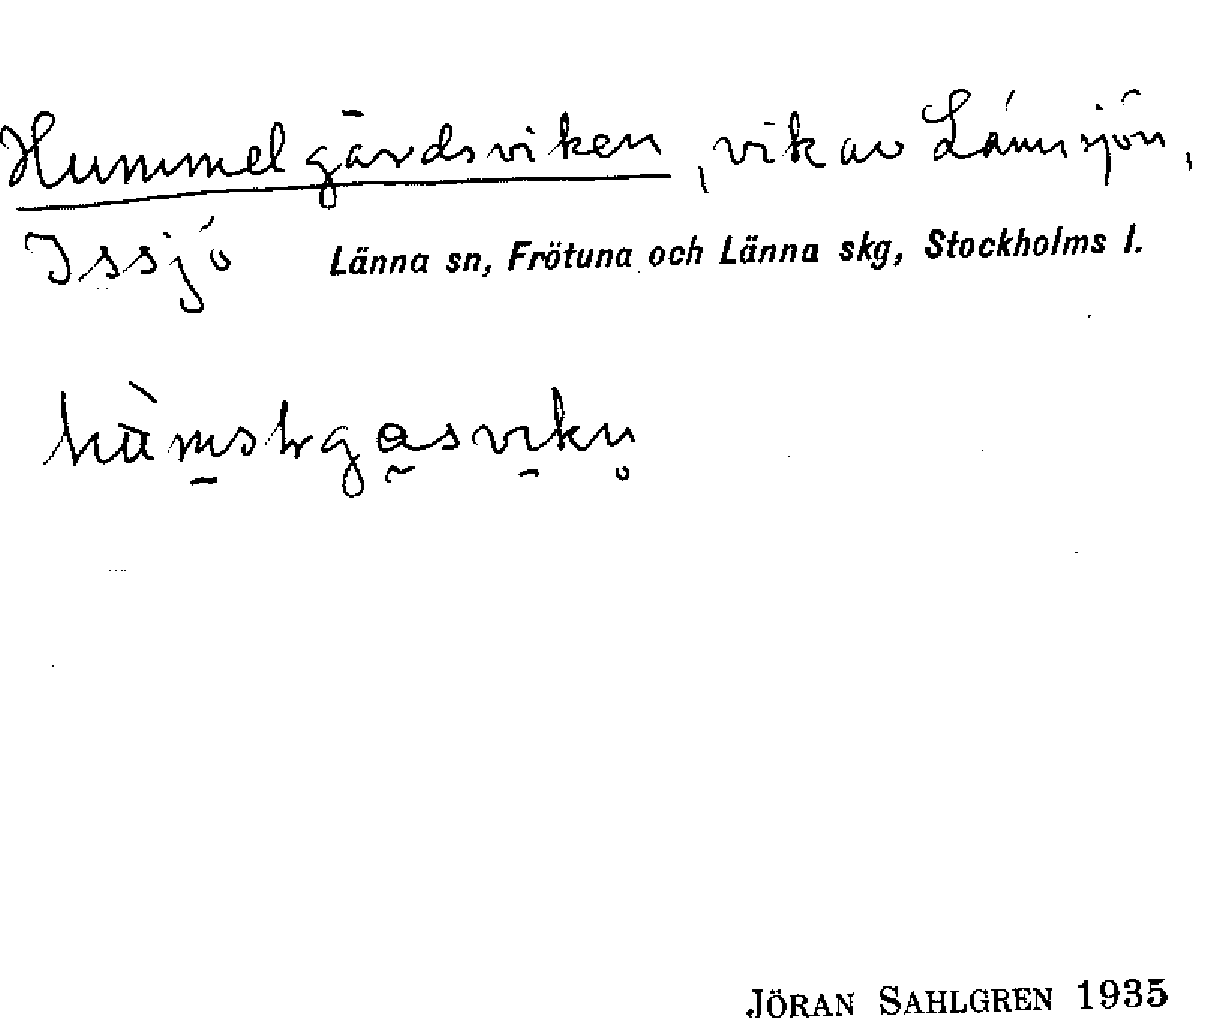 Hummelgårdsviken, vik av Länsisjön,
Issjö Länna sn, Frötuna och Länna skg, Stockholms l.
JÖRAN SAHLGREN 1935